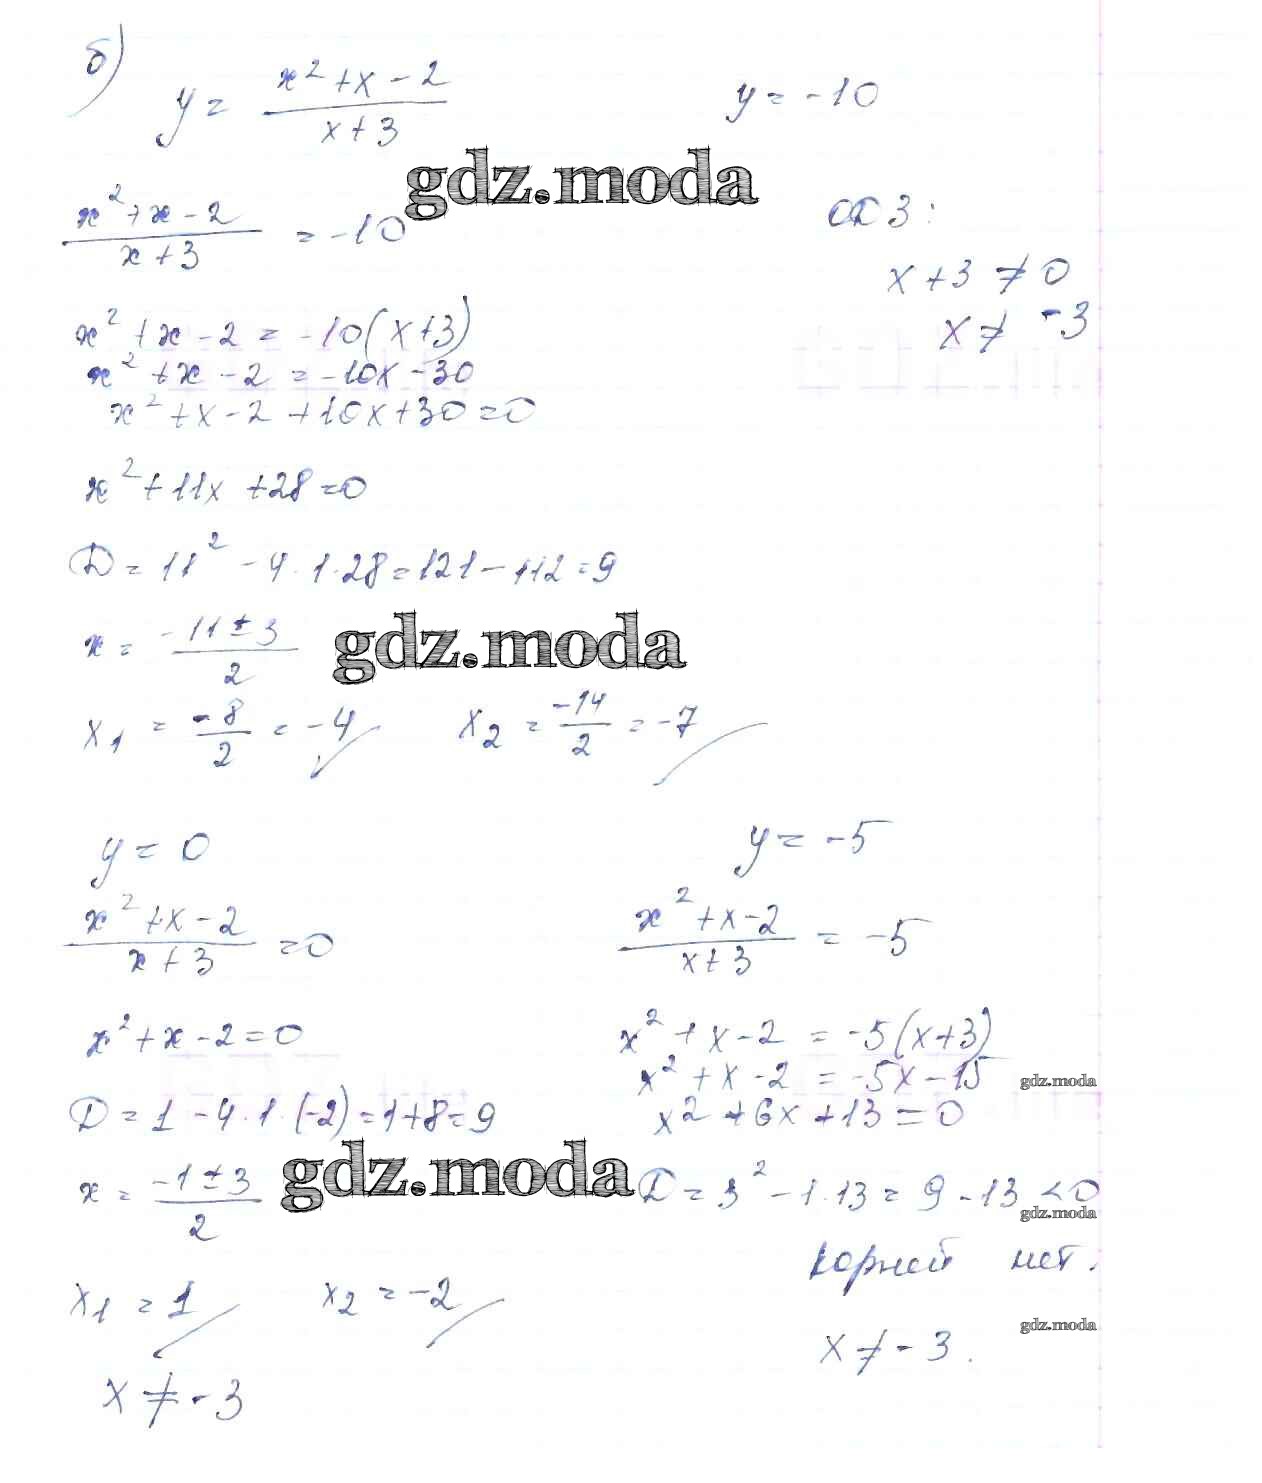 б)
y = (x² + x - 2)/(x + 3)    y = -10
gdz.moda
(x² + x - 2)/(x + 3) = -10    ОДЗ:
x + 3 ≠ 0
x ≠ -3
x² + x - 2 = -10(x + 3)
x² + x - 2 = -10x - 30
x² + x - 2 + 10x + 30 = 0
x² + 11x + 28 = 0
D = 11² - 4·1·28 = 121 - 112 = 9
x = (-11 ± 3)/2    gdz.moda
x₁ = -8/2 = -4    x₂ = -14/2 = -7
y = 0
(x² + x - 2)/(x + 3) = 0
x² + x - 2 = 0
D = 1 - 4·1·(-2) = 1 + 8 = 9
x = (-1 ± 3)/2    gdz.moda
x₁ = 1    x₂ = -2
x ≠ -3
y = -5
(x² + x - 2)/(x + 3) = -5
x² + x - 2 = -5(x + 3)
x² + x - 2 = -5x - 15    gdz.moda
x² + 6x + 13 = 0
D = 3² - 1·13 = 9 - 13 < 0
gdz.moda
корней нет.
gdz.moda
x ≠ -3.